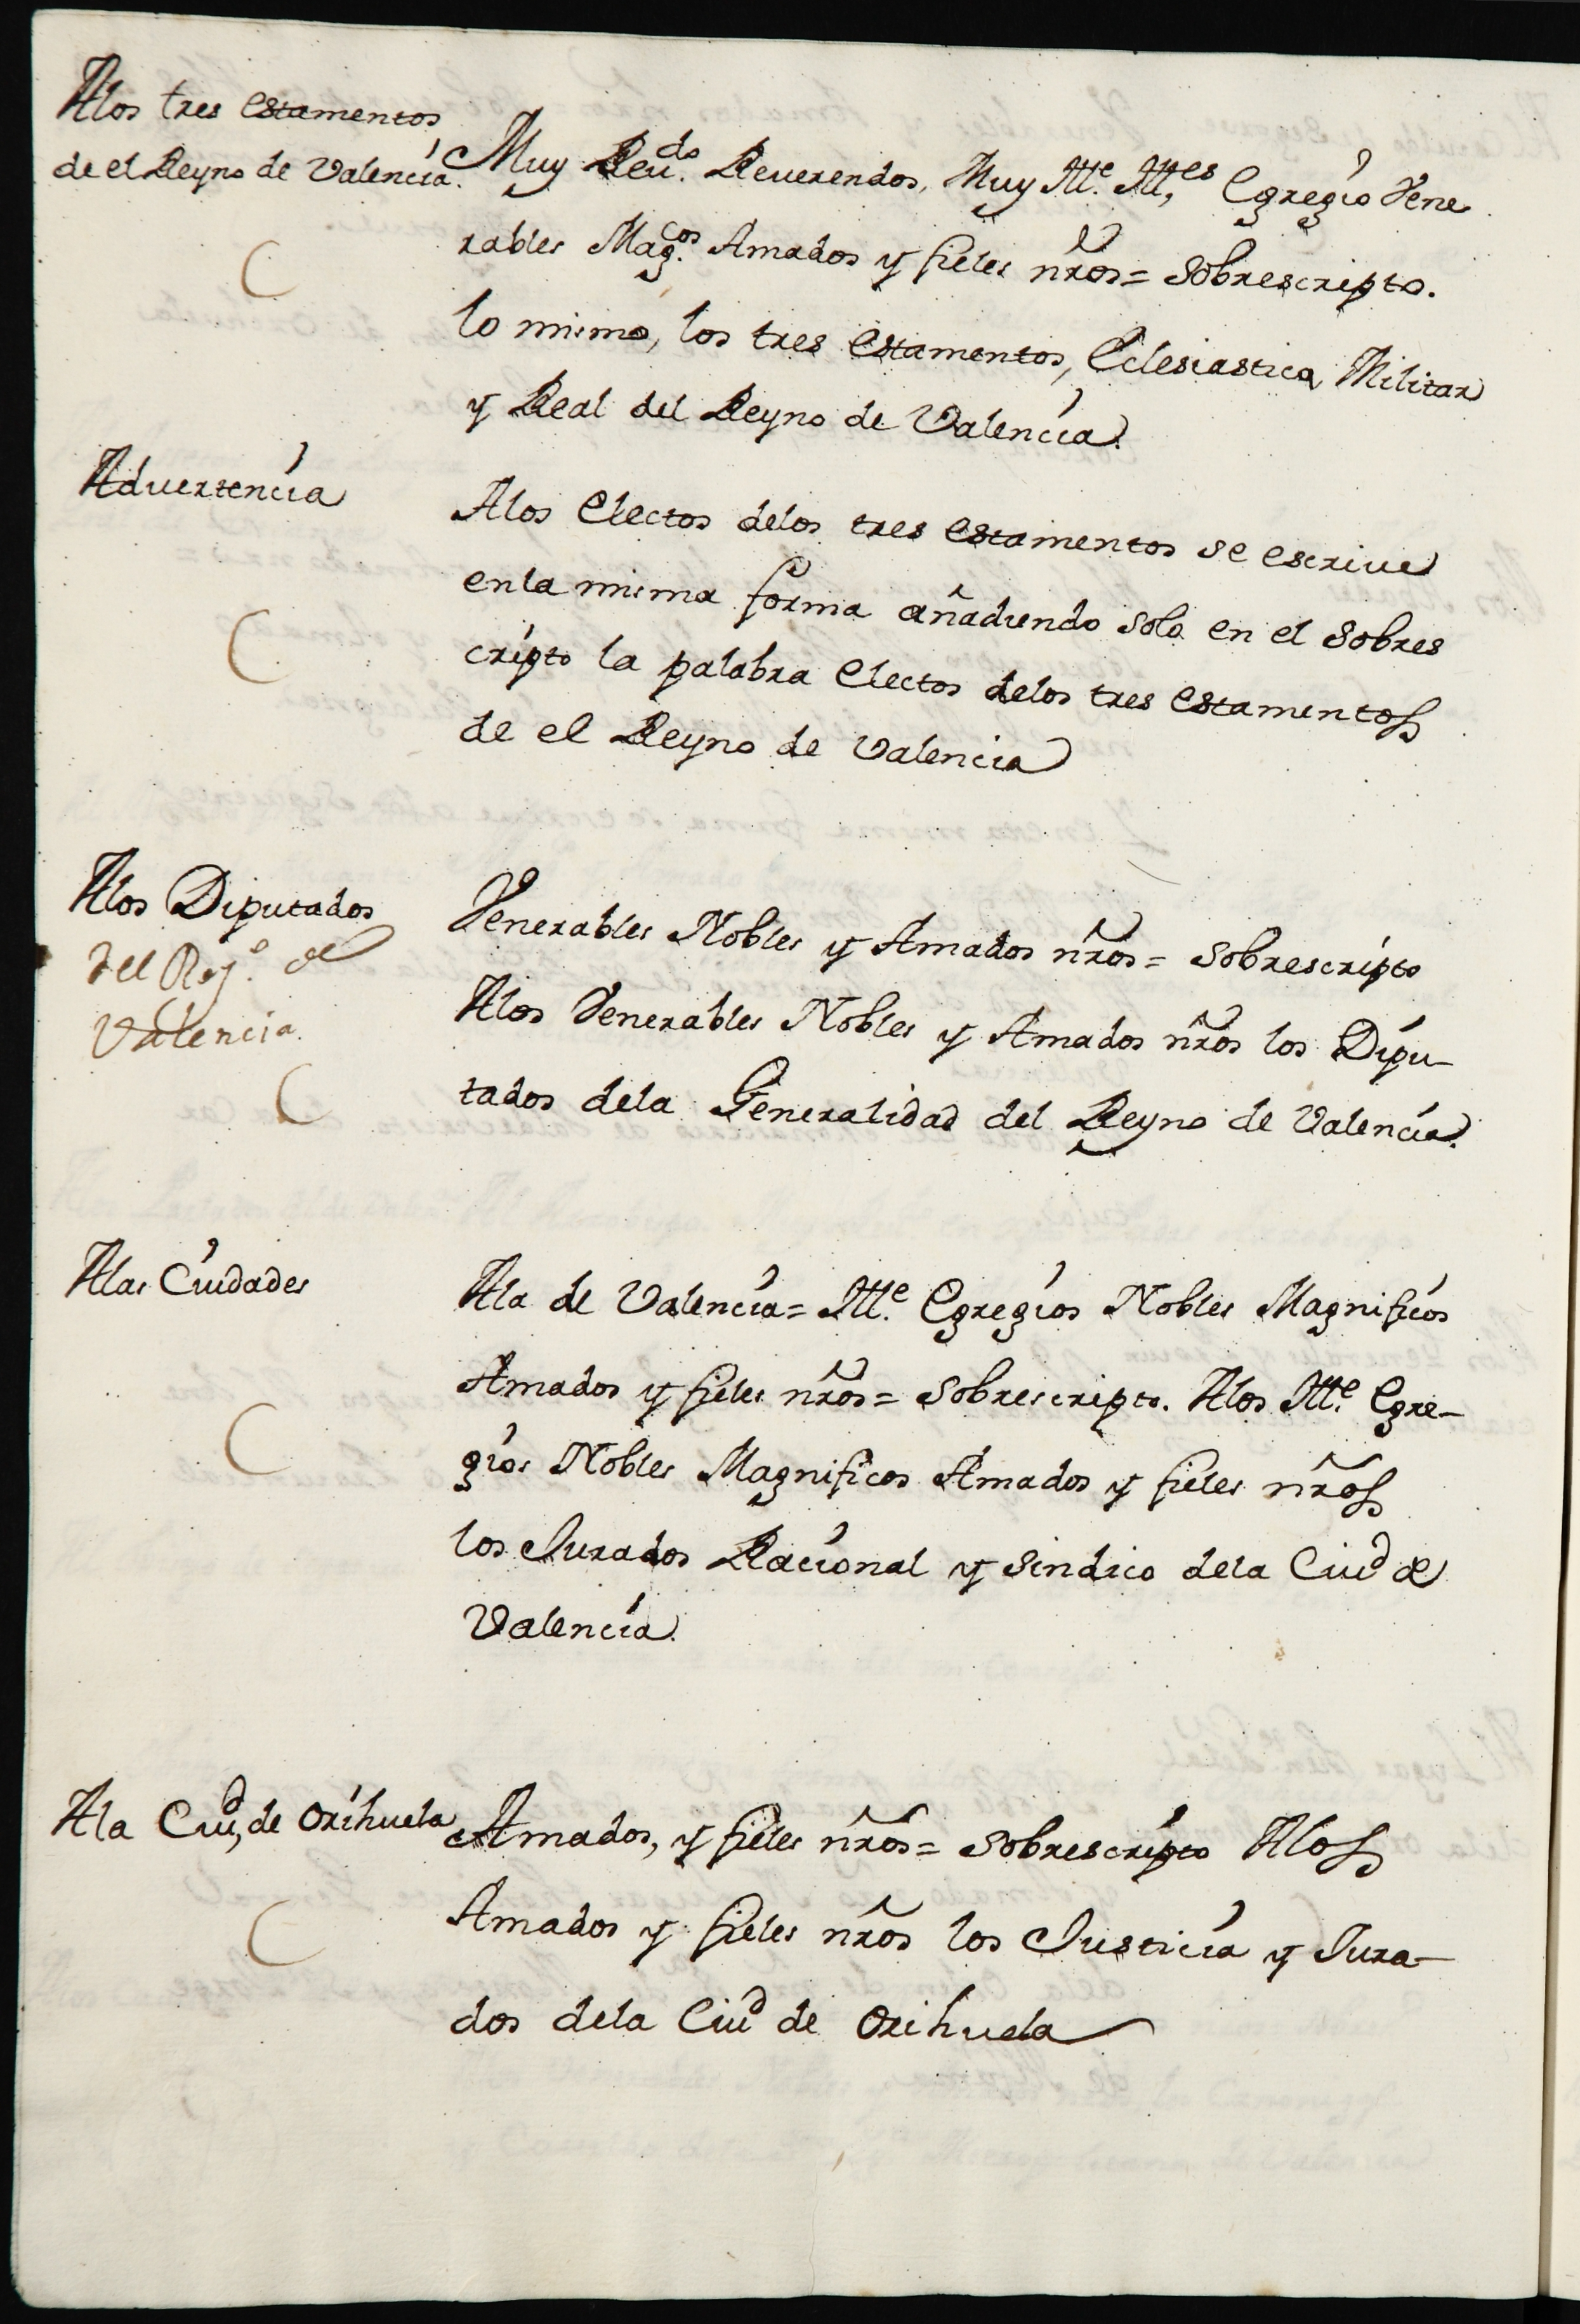 Alos tres estamentos
de el Reyno de Valencia.
Muy Reu.do Reuerendos, Muy Ill.e Ill,es Egregio Vene
rables Mag.cos Amados y fieles nr̃os = Sobrescripto.
lo mismo, los tres estamentos, Eclesiastico, Militar
y Real del Reyno de Valencia.
Aduertencia
Alos Electos delos tres estamentos se escriue
enla misma forma añadiendo solo en el Sobres
cripto la palabra Electos delos tres estamentos
de el Reyno de Valencia
Alos Diputados
del Rey.o de
Valencia.
Venerables Nobles y Amados nr̃os = Sobrescripto
Alos Venerables Nobles y Amados nr̃os los Dipu-
tados dela Generalidad del Reyno de Valencia.
Alas Ciudades
Ala de Valencia = Ill.e Egregios Nobles Magnificos
Amados y fieles nr̃os = Sobrescripto. Alos Ill.e Egre-
gios Nobles Magnificos Amados y fieles nr̃os
los Jurados Racional y Sindico dela Ciud de
Valencia.
Ala Ciud, de Orihuela
Amados, y fieles nr̃os = Sobrescripto Alos
Amados y fieles nr̃os los Justicia y Jura-
dos dela Ciud de Orihuela